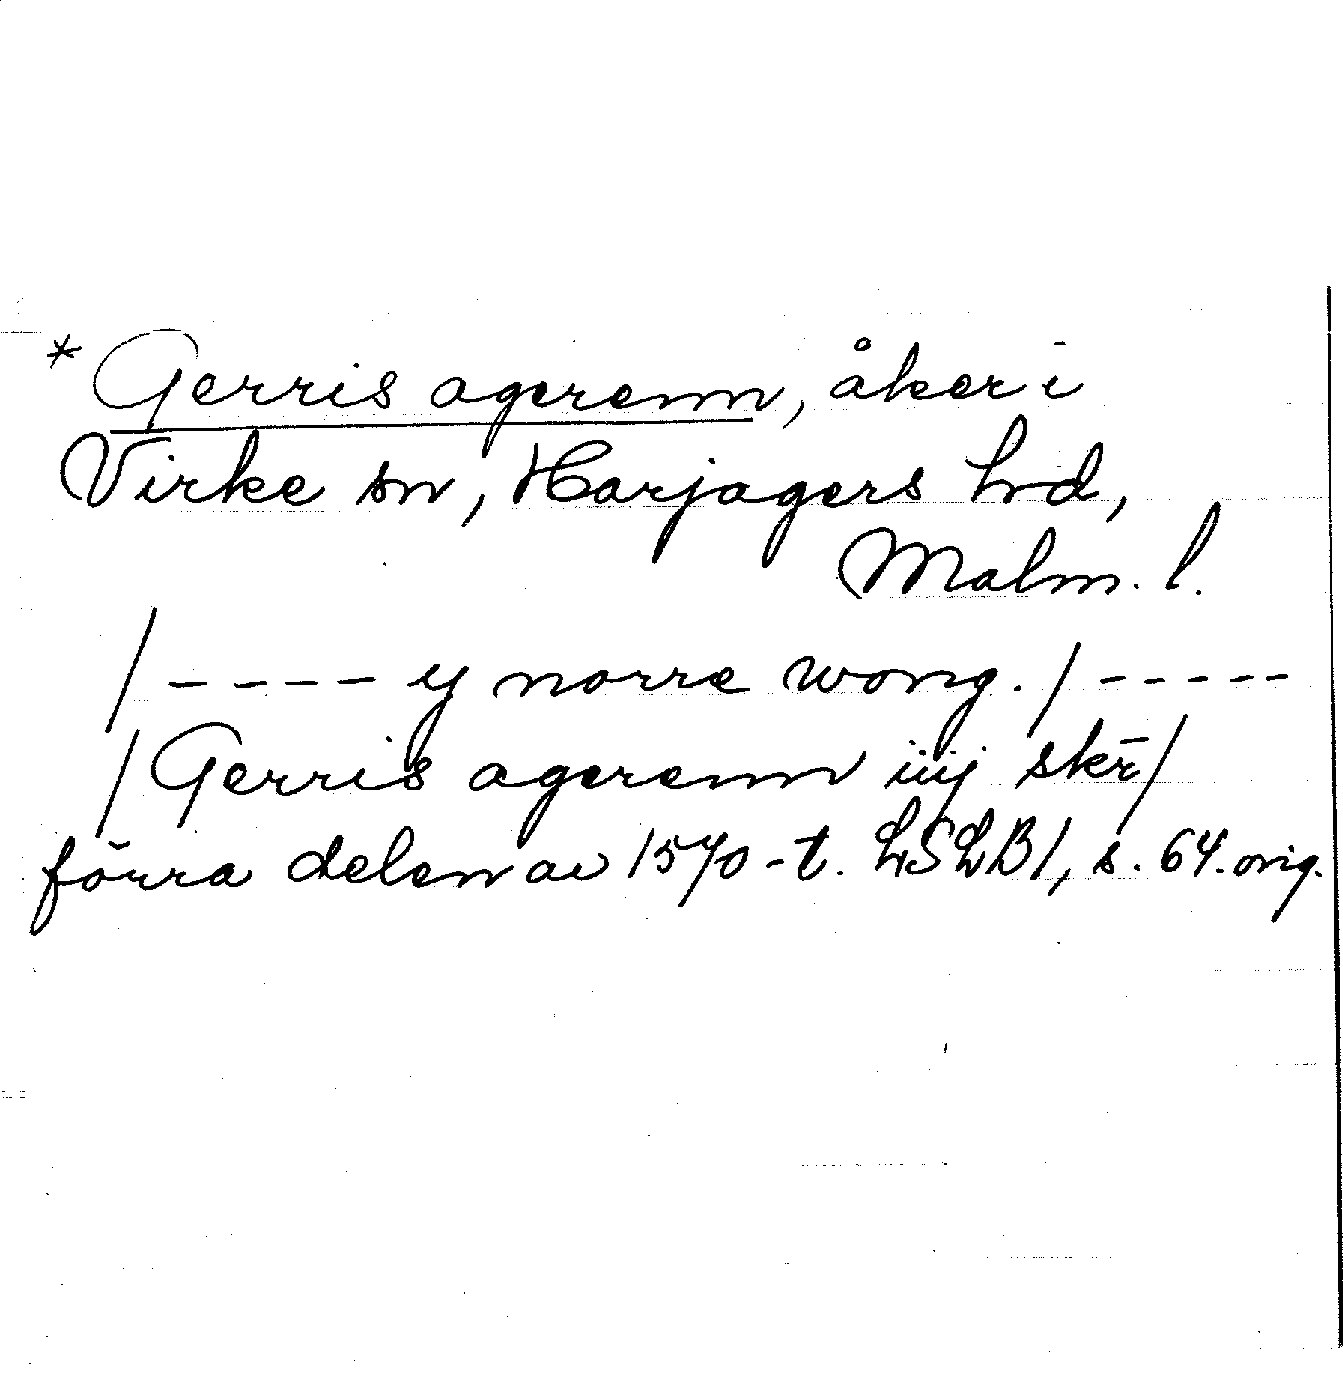 * Gerris agerenn, åker i
Virke sn, Harjagers hd,
Malm. l.
/---- y norre wong. / -----
/ Gerris agerenn iiij skr̄ /
förra delen av 1570-t. LSLB 1, s. 64. orig.